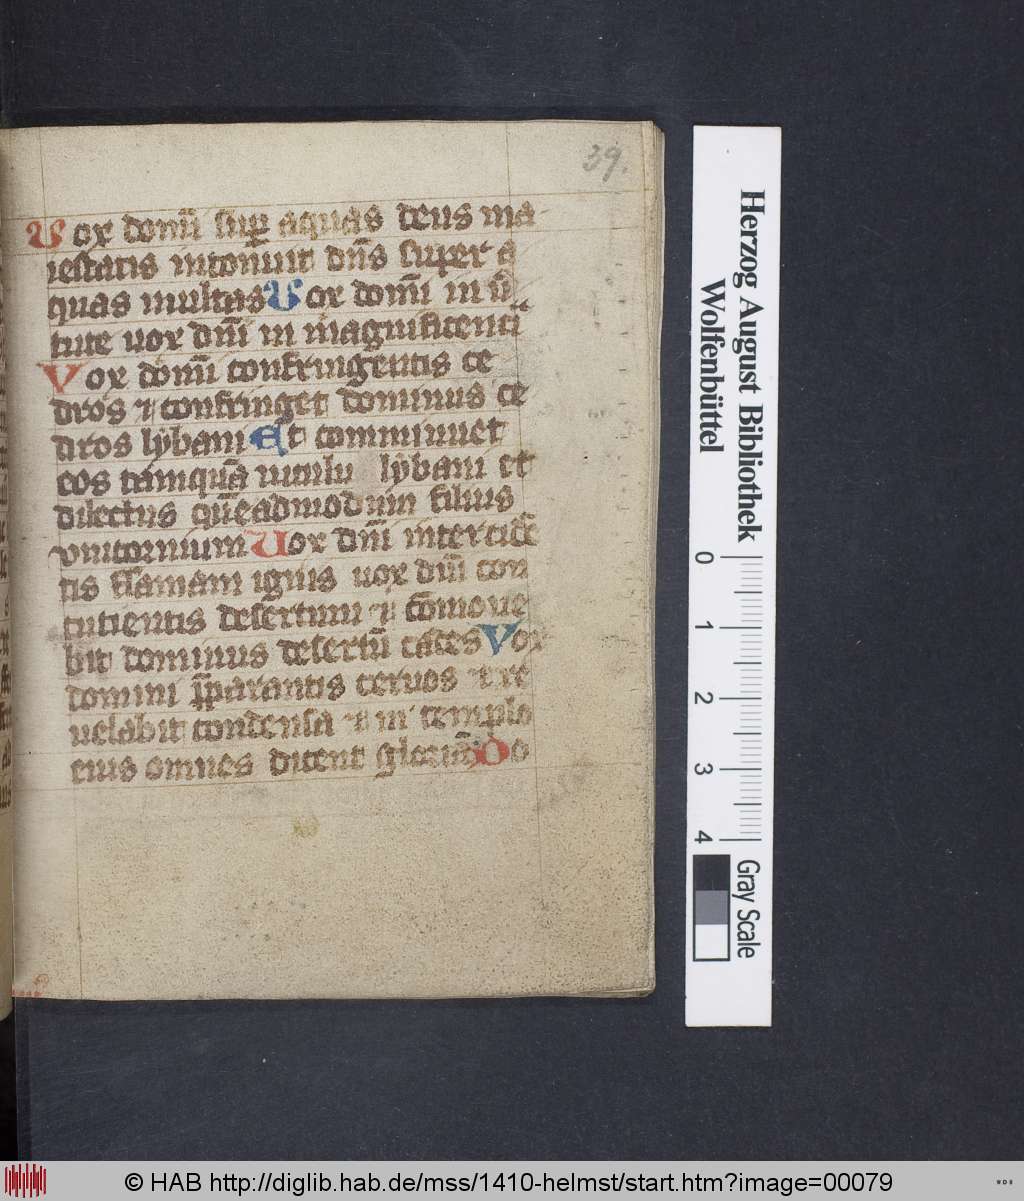 39.
Vox domī sup aquas deus ma-
iestatis intonuit dn̄s super a
quas multas Vox domī in ūr
tute uox dn̄i in magnificenti
Vox domī confringentis ce
dros ⁊ confringet dominus ce
dros lybani Et comminuet
eos tamquā uitulu lybani et
dilectus quēadmodum filius
vnicornium Uox dn̄i intercidē
tis flāmam ignis uox dn̄i con
cutientis desertum ⁊ cōmoue
bit dominus desertū cades Vox
domini p̄parantis ceruos ⁊ re
uelabit condensa ⁊ in templo
eius omnes dicent gloriā Do
Herzog August Bibliothek
Wolfenbüttel
0 1 2 3 4
Gray Scale
© HAB http://diglib.hab.de/mss/1410-helmst/start.htm?image=00079